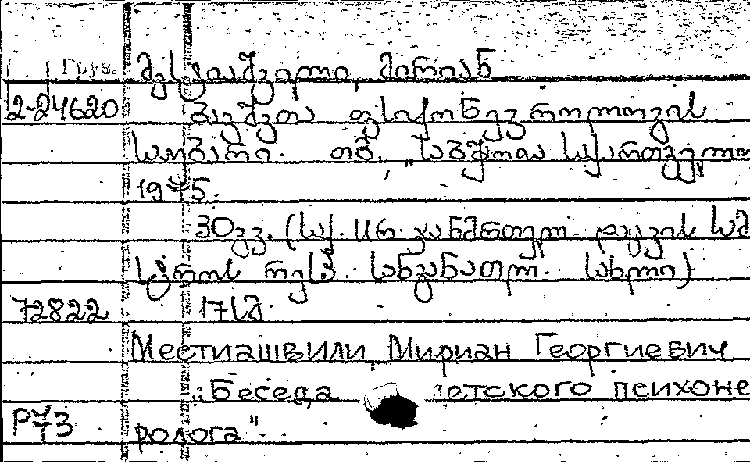 Груз. მესტიაშვილი, მირიან
2-24620 ბავშვთა ფსიქონევროლოგის
საუბარი. თბ. „საბჭოთა საქართველო
1975.
30გვ. (საქ. სსრ ჯანმრთელ. დაცვის სამ
სტროს რესპ. სანგანათლ. სახლი)
72822 17სმ.
Местиашвили, Мириан Георгиевич
"Беседа етского психоне
Р73 ролога".